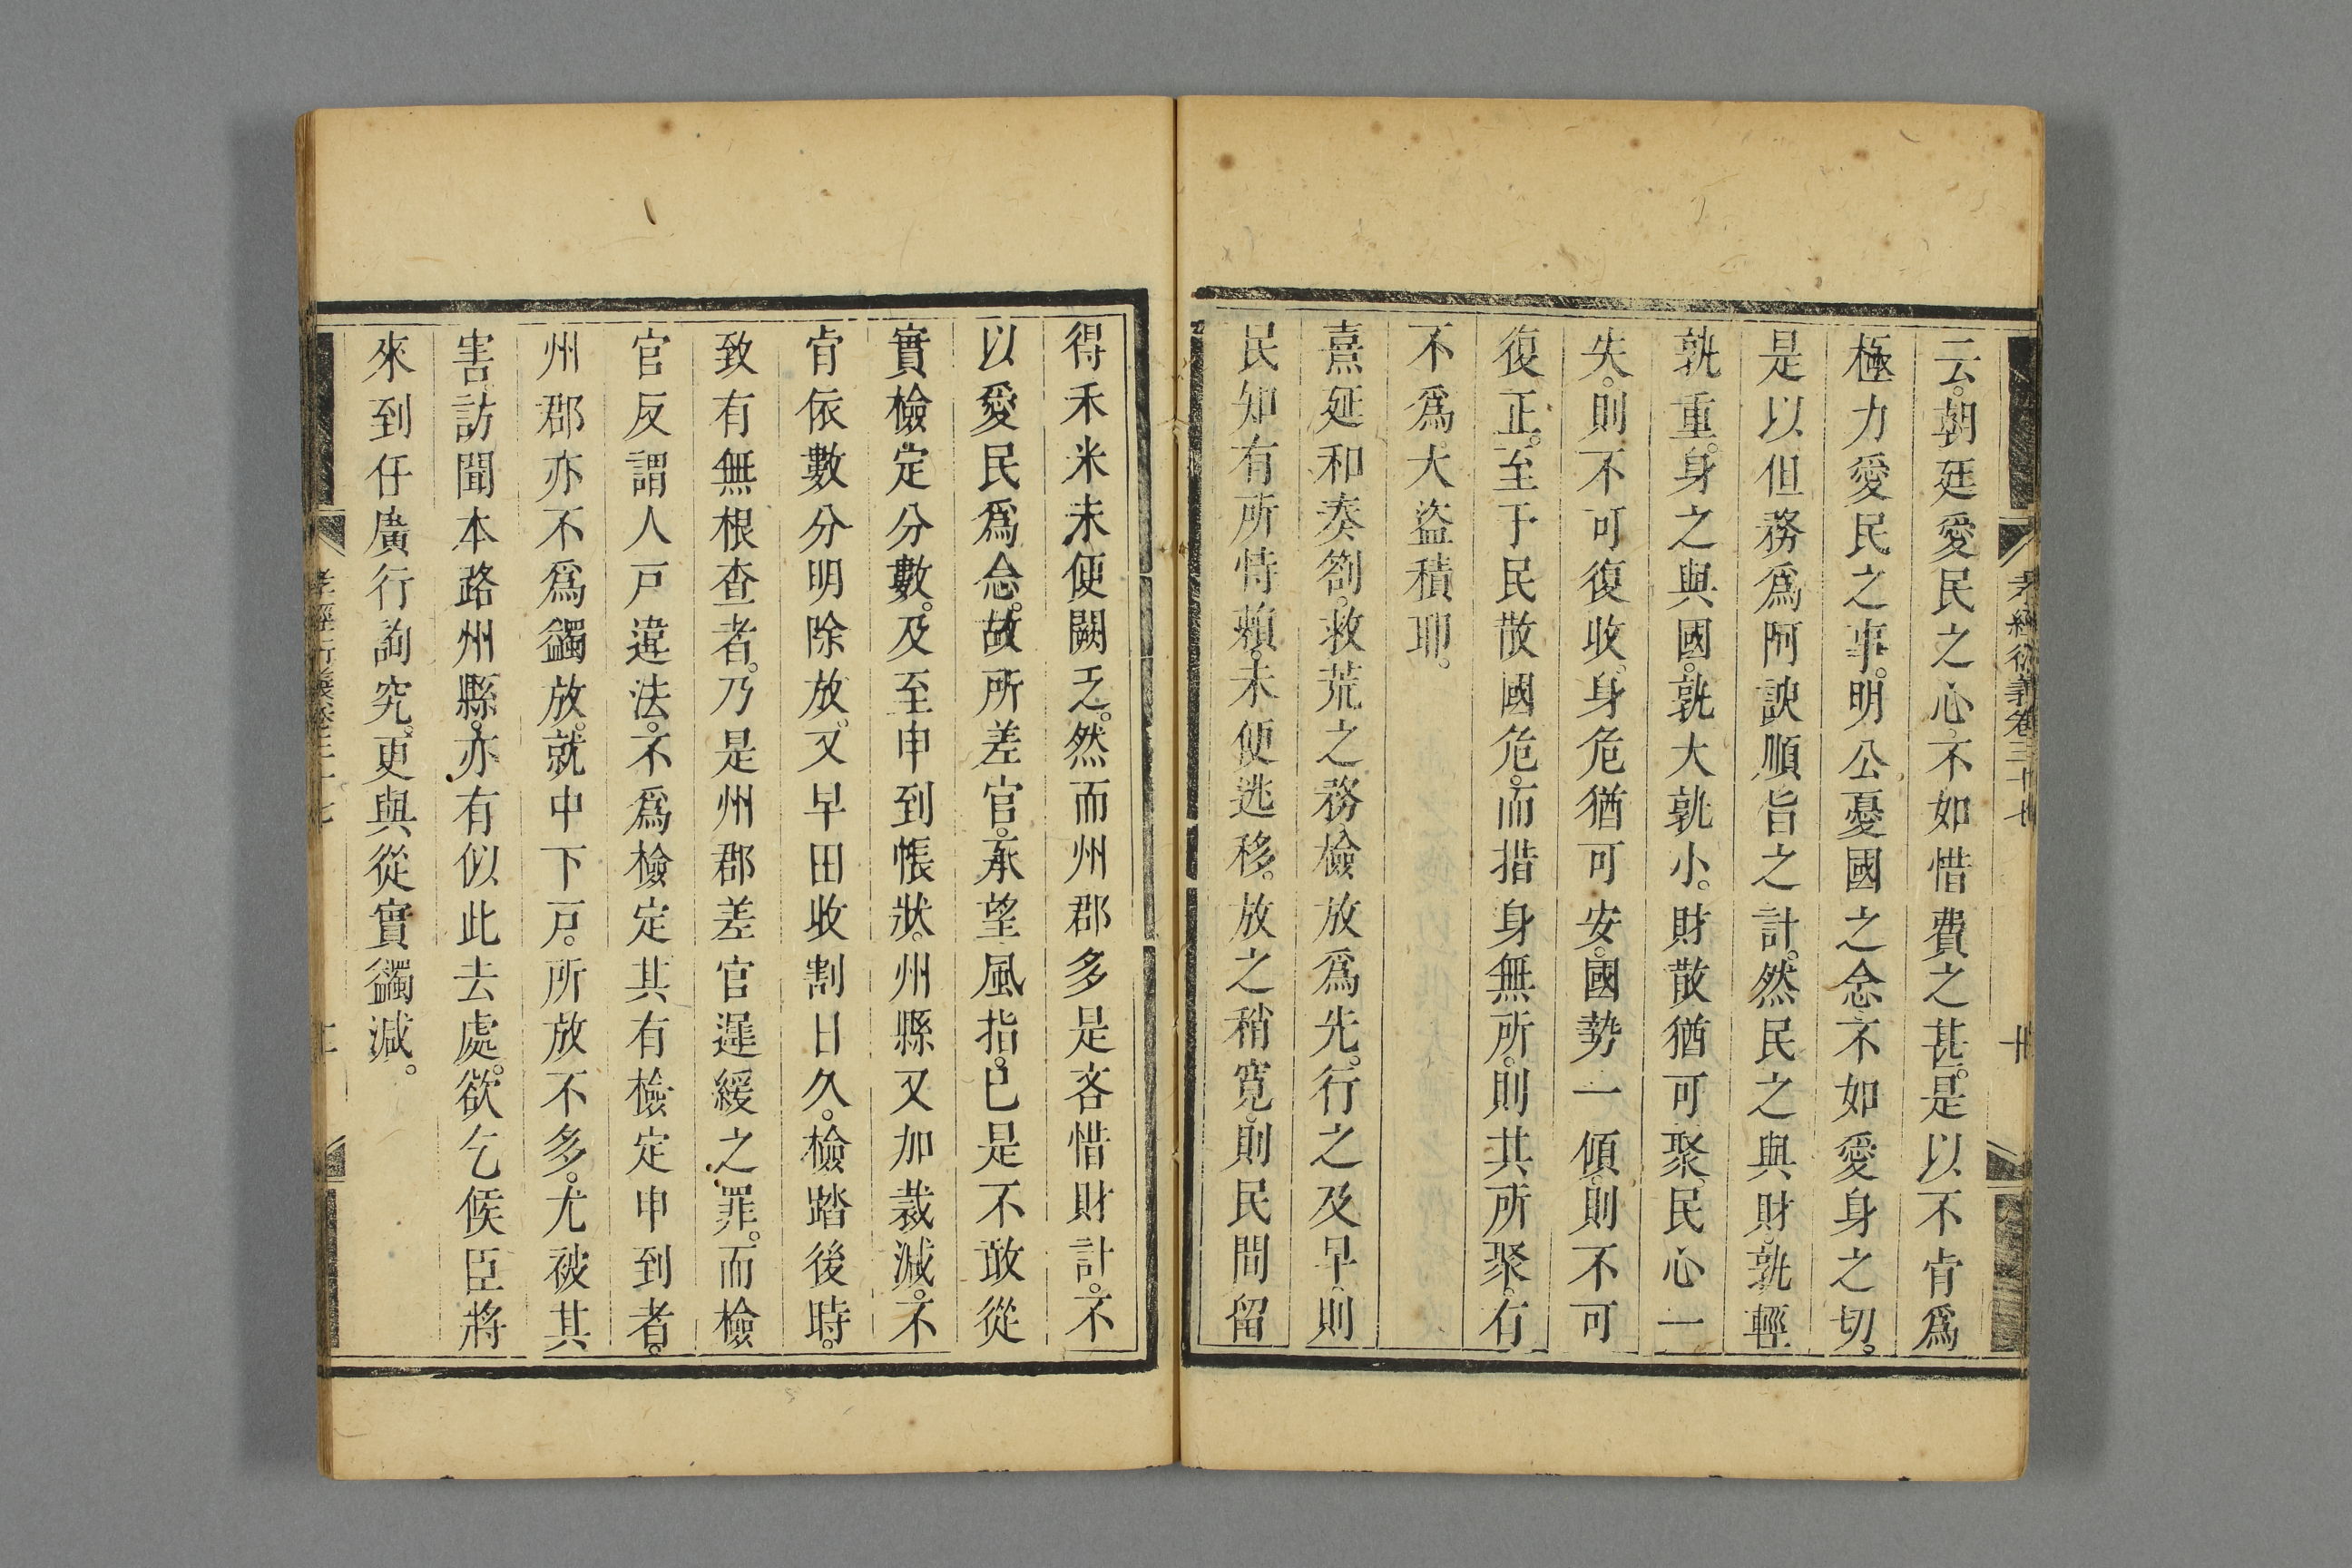 孝經衍義卷三十七
十
云。朝廷愛民之心。不如惜費之甚。是以不肯爲
極力愛民之事。明公憂國之念。不如愛身之切。
是以但務爲阿諛順旨之計。然民之與財。孰輕
孰重。身之與國。孰大孰小。財散猶可聚。民心一
失。則不可復收。身危猶可安。國勢一傾。則不可
復正。至于民散國危。而措身無所。則其所聚。有
不爲大盜積耶。
熹延和奏劄。救荒之務。檢放爲先。行之及早。則
民知有所恃賴。未便逃移。放之稍寛。則民間留
得禾米。未便闕乏。然而州郡多是吝惜財計。不
以愛民爲念。故所差官。承望風指。已是不敢從
實檢定分數。及至申到帳狀。州縣又加裁減。不
肯依數分明除放。又早田收割日久。檢踏後時。
致有無根查者。乃是州郡差官遲緩之罪。而檢
官反謂人戸違法。不爲檢定。其有檢定申到者。
州郡亦不爲蠲放。就中下戸。所放不多。尤被其
害。訪聞本路州縣。亦有似此去處。欲乞候臣將
來到任廣行詢究。更與從實蠲減。
孝經衍義卷三十七